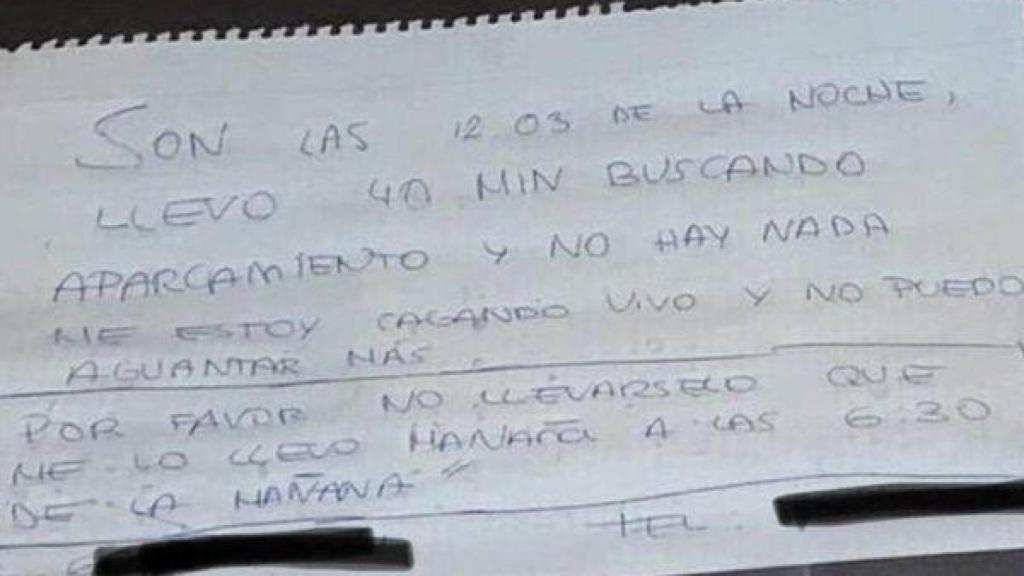 SON LAS 12 03 DE LA NOCHE,
LLEVO 40 MIN BUSCANDO
APARCAMIENTO Y NO HAY NADA
ME ESTOY CAGANDO VIVO Y NO PUEDO
AGUANTAR MÁS.
POR FAVOR NO LLEVARSELO QUE
ME LO LLEVO MAÑANA A LAS 6:30
DE LA MAÑANA
TEL: